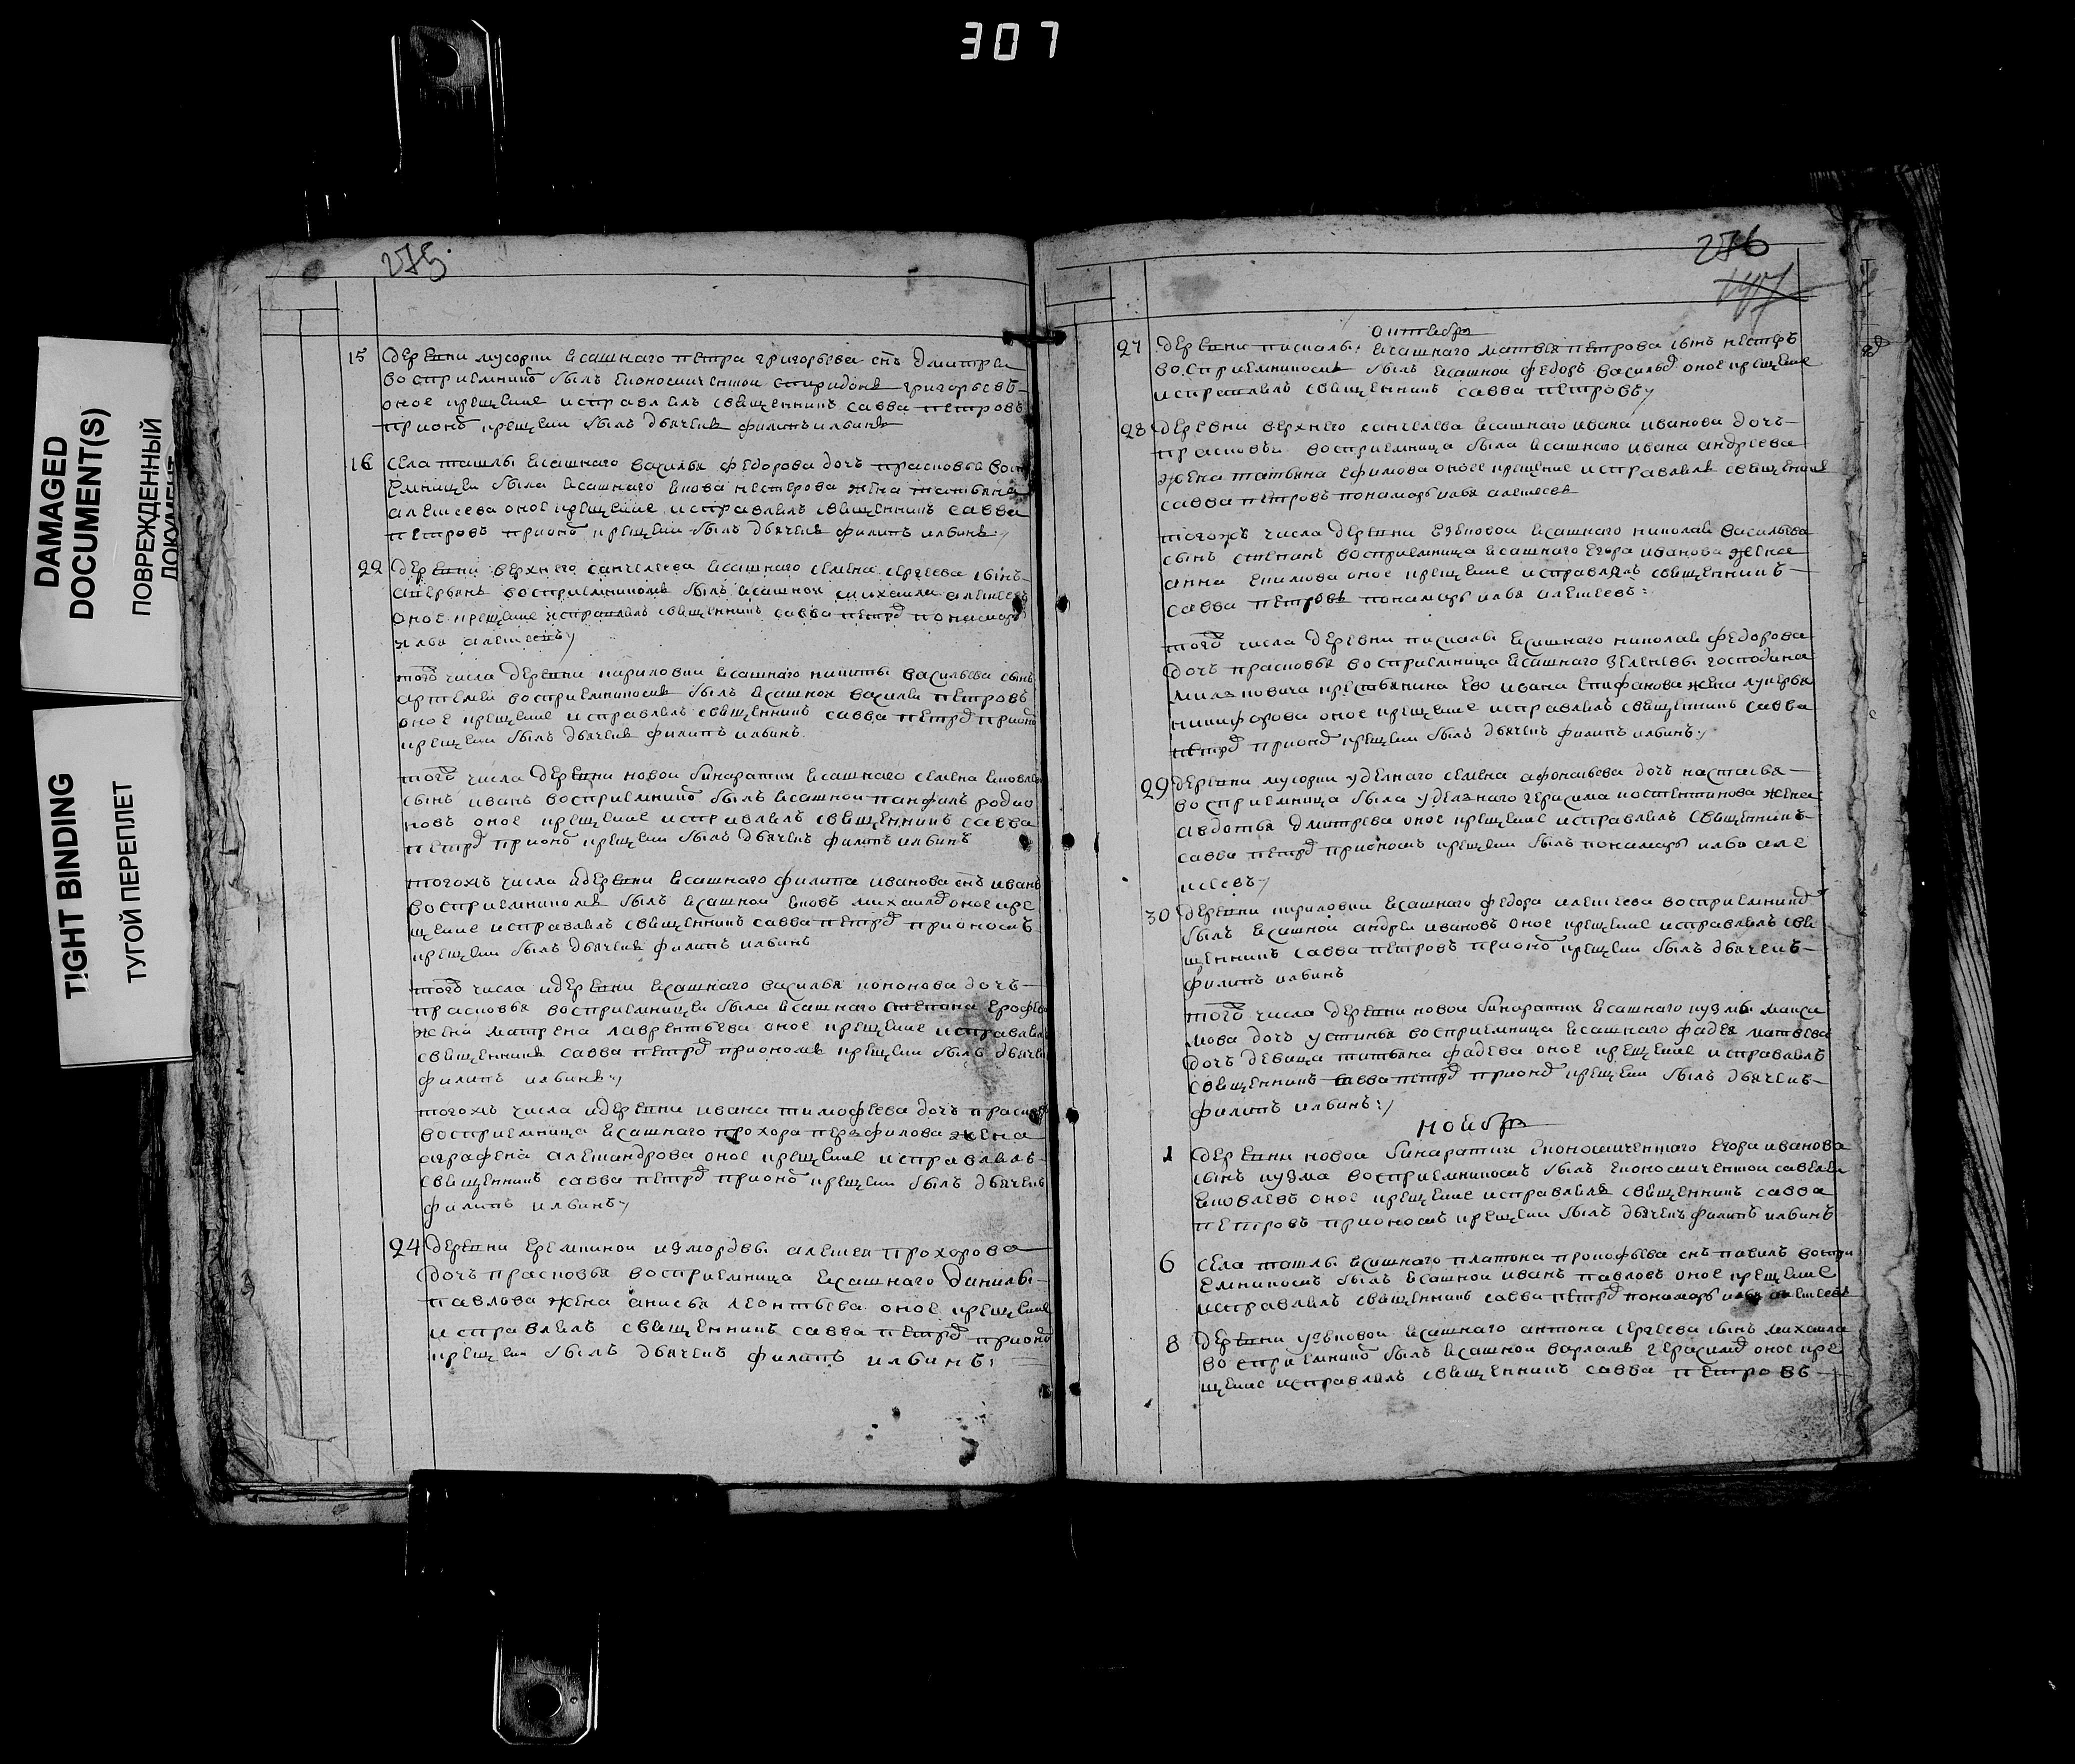 307
DAMAGED
DOCUMENT(S)
ПОВРЕЖДЕННЫЙ
ДОКУМЕНТ
TIGHT BINDING
ТУГОЙ ПЕРЕПЛЕТ
275.
15 деревни мусорки ясашнаго петра григорьева снъ дмитреи
восприемнико былъ економиченской спиридонъ григорьевъ
оное крещение исправлялъ священникъ савва петровъ
прионо крещении былъ дьячекъ филипъ ильинъ
16 села ташлы ясашнаго василья федорова дочь прасковья воспри
емницеи была ясашнаго якова нестерова жена татьяна
алексеева оное крещение исправлялъ священникъ савва
петровъ прионо крещении былъ дьячекъ филипъ ильинъ
22 деревни верхнего санчелеева ясашнаго семена сергеева сынъ
аверьянъ восприемникомъ былъ ясашной михаила алексеевъ
оное крещение исправлялъ священникъ савва петро понамарь
илья алексеевъ
того числа деревни кириловки ясашнаго никиты васильева сынъ
артемеи восприемникомъ былъ ясашной василеи петровъ
оное крещение исправлялъ священникъ савва петро прионо
крещении былъ дьячекъ филипъ ильинъ
того числа деревни новой бинаратки ясашнаго семена яковлева
сынъ иванъ восприемнико былъ ясашной панфилъ родио
новъ оное крещение исправлялъ священникъ савва
петро прионо крещении былъ дьячекъ филипъ ильинъ
тогожъ числа идеревни ясашнаго филипа иванова снъ иванъ
восприемникомъ былъ ясашной яковъ михаило оное кре
щение исправлялъ священникъ савва петро приономъ
крещении былъ дьячекъ филипъ ильинъ
того числа идеревни ясашнаго василья кононова дочь
прасковья восприемницеи была ясашнаго степана ерофеева
жена матрена лаврентьева оное крещение исправлялъ
священникъ савва петро приономъ крещении былъ дьячекъ
филипъ ильинъ
тогожъ числа идеревни ивана тимофеева дочь прасковья
восприемница ясашнаго прохора перфилова жена
аграфена александрова оное крещение исправлялъ
священникъ савва петро прионо крещении былъ дьячекъ
филипъ ильинъ
24 деревни еремкиной измордвы алексея прохорова
дочь прасковья восприемница ясашнаго данилы
павлова жена анисья леонтьева оное крещение
исправлялъ священникъ савва петро прионо
крещении былъ дьячекъ филипъ ильинъ
276
октябрь
27 деревни пискалы ясашнаго матвея петрова сынъ нестеръ
восприемникомъ былъ ясашной федоръ василье оное крещение
исправлялъ священникъ савва петровъ
28 деревни верхнего санчелеева ясашнаго ивана иванова дочь
прасковья восприемница была ясашнаго ивана андреева
жена татьяна ефимова оное крещение исправлялъ священникъ
савва петровъ понамарь илья алексеевъ
тогожъ числа деревни узюковой ясашнаго николая васильева
сынъ степанъ восприемница ясашнаго егора иванова жена
анна екимова оное крещение исправлялъ священникъ
савва петровъ понамарь илья алексеевъ
того числа деревни пискалы ясашнаго николая федорова
дочь прасковья восприемница ясашнаго зеленевы господина
крестьянина ево ивана епифанова жена лукерья
никифорова оное крещение исправлялъ священникъ савва
петро прионо крещении былъ дьячекъ филипъ ильинъ
29 деревни мусорки уделнаго семена афонасьева дочь настасья
восприемница была уделнаго герасима костентинова жена
авдотья дмитрева оное крещение исправлялъ священникъ
савва петро приономъ крещении былъ понамарь илья але
ксеевъ
30 деревни кириловки ясашнаго федора алексеева восприемнико
былъ ясашной андреи ивановъ оное крещение исправлялъ свя
щенникъ савва петровъ прионо крещении былъ дьячекъ
филипъ ильинъ
того числа деревни новой бинаратки ясашнаго кузмы макси
мова дочь устинья восприемница ясашнаго фадея матвева
дочь девица татьяна фадева оное крещение исправлялъ
священникъ савва петро прионо крещении былъ дьячекъ
филипъ ильинъ
ноябрь
1 деревни новой бинаратки економиченскаго егора иванова
сынъ кузма восприемникомъ былъ економиченской савелеи
яковлевъ оное крещение исправлялъ священникъ савва
петровъ приономъ крещении былъ дьячекъ филипъ ильинъ
6 села ташлы ясашнаго платона прокофьева снъ павилъ воспри
емникомъ былъ ясашной иванъ павловъ оное крещение
исправлялъ священникъ савва петро понамарь илья алексеевъ
8 деревни узюковой ясашнаго антона сергеева сынъ михаила
восприемнико былъ ясашной варламъ герасимо оное кре
щение исправлялъ священникъ савва петровъ